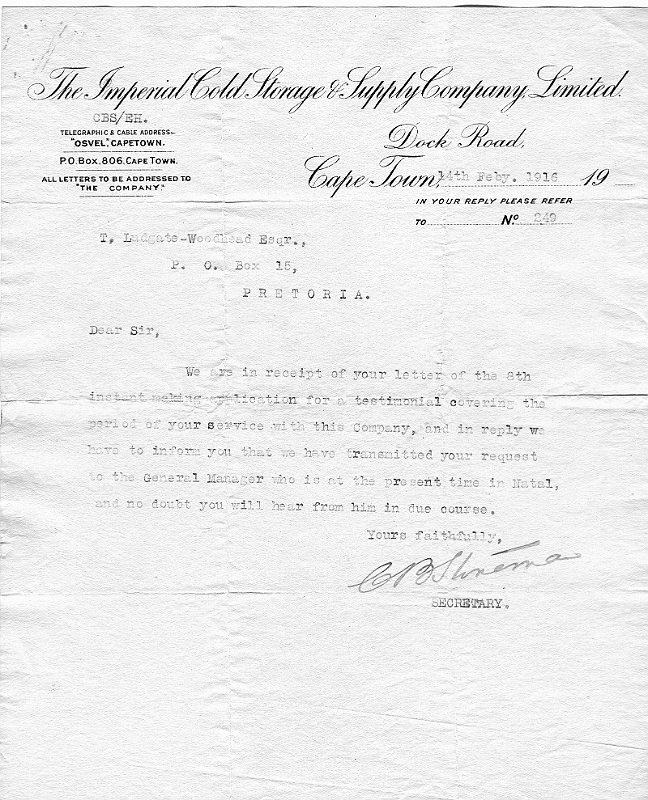 The Imperial Cold Storage & Supply Company, Limited.
CBS/EH.
TELEGRAPHIC & CABLE ADDRESS:-
"OSVEL", CAPETOWN.
P.O. BOX, 806, CAPE TOWN.
ALL LETTERS TO BE ADDRESSED TO
"THE COMPANY."
Dock Road,
Cape Town, 14th Feby. 1916 19
IN YOUR REPLY PLEASE REFER
TO No 249
T, Ludgate-Woodhead Esqr.,
P. O. Box 15,
PRETORIA.
Dear Sir,
We are in receipt of your letter of the 8th
instant making application for a testimonial covering the
period of your service with this Company, and in reply we
have to inform you that we have transmitted your request
to the General Manager who is at the present time in Natal,
and no doubt you will hear from him in due course.
Yours faithfully,
SECRETARY.